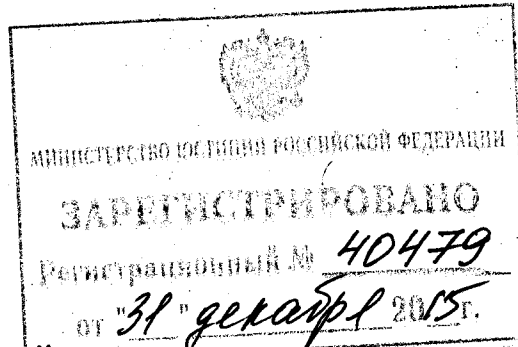 МИНИСТЕРСТВО ЮСТИЦИИ РОССИЙСКОЙ ФЕДЕРАЦИИ
ЗАРЕГИСТРИРОВАНО
Регистрационный № 40479
от "31" декабря 2015г.